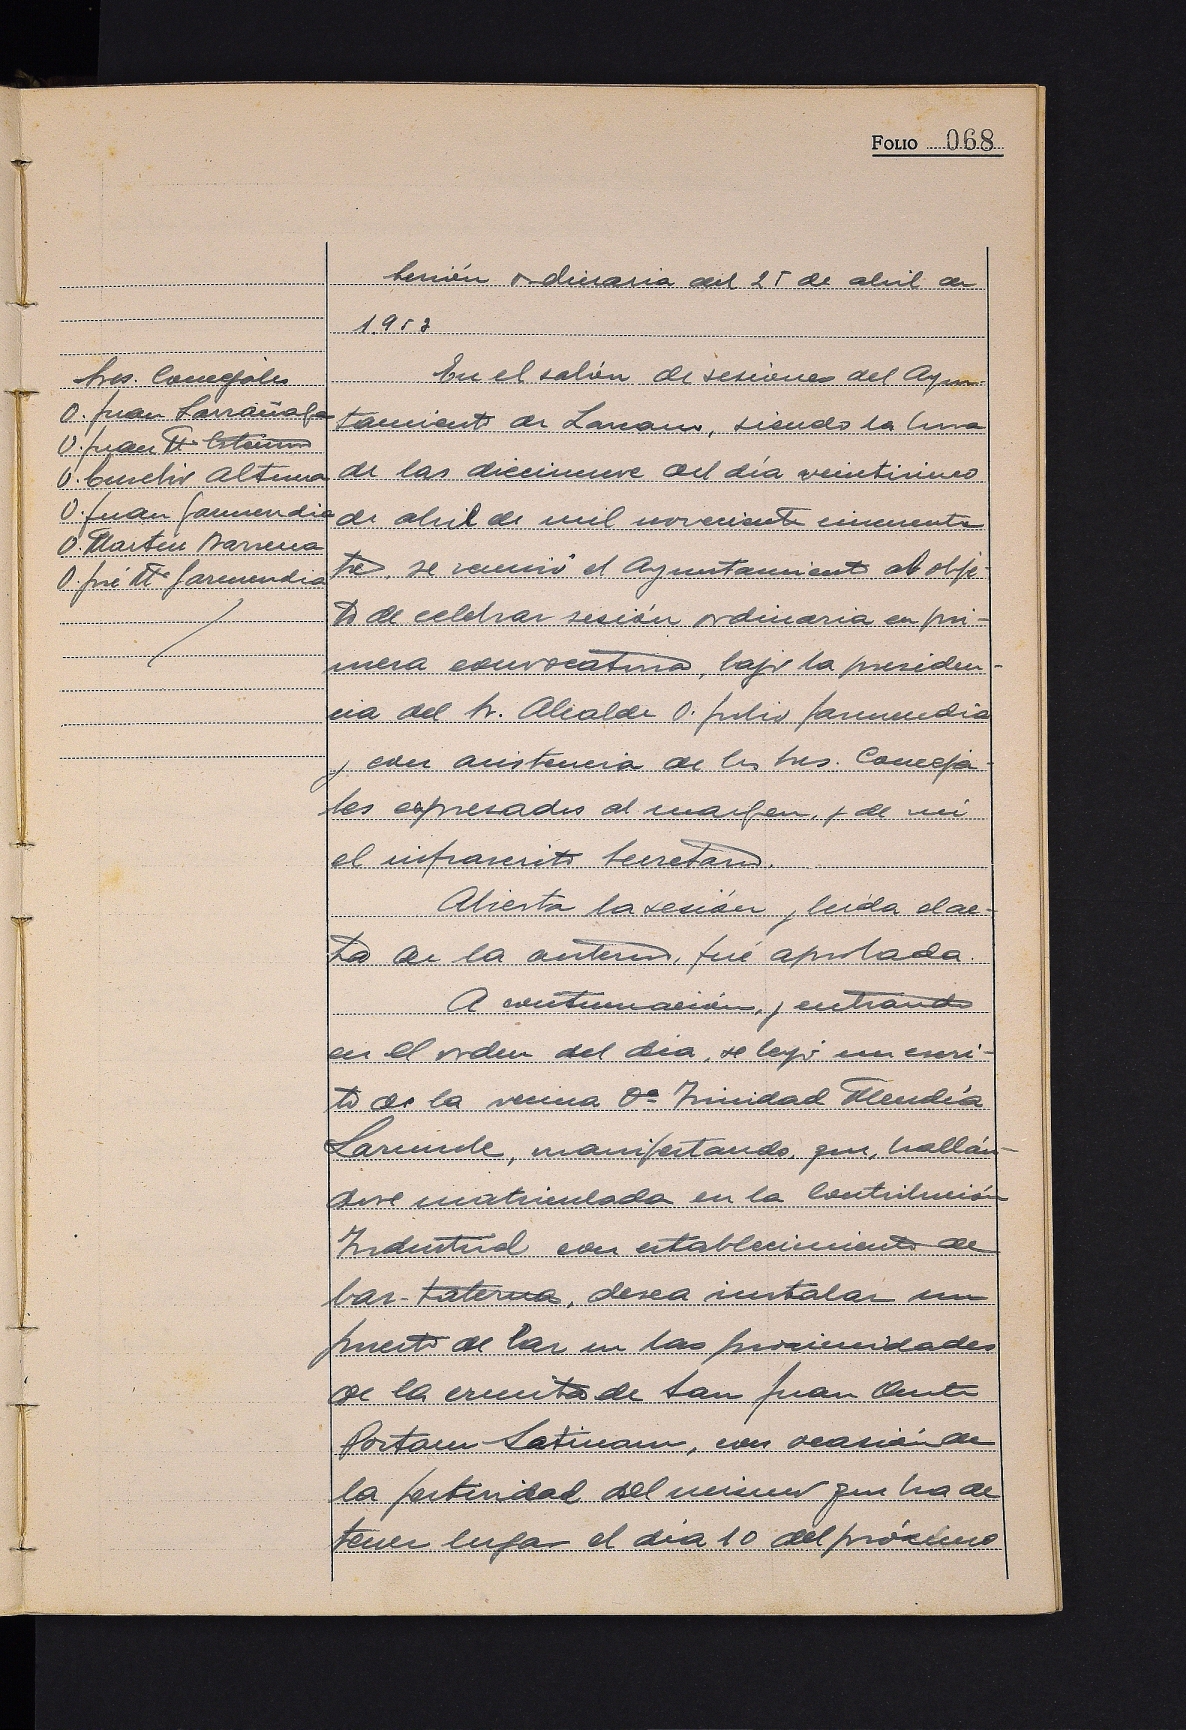 Folio 068
Sesión ordinaria del 25 de abril de
1953
Sres. Concejales
D. Juan Larrañaga
D. Juan Mª
D. Emilio Altuna
D. Juan Garmendia
D. Martín Barrena
D. José Mª Garmendia
En el salón de sesiones del Ayun-
tamiento de Lazcano, siendo la hora
de las diecinueve del día veinticinco
de abril de mil novecientos cincuenta
tres, se reunió el Ayuntamiento al obje-
to de celebrar sesión ordinaria en pri-
mera convocatoria, bajo la presiden-
cia del Sr. Alcalde D. Julio Garmendia
y con asistencia de los Sres. Conceja-
les expresados al margen, y de mí
el infrascrito Secretario.
Abierta la sesión y leída el ac-
ta de la anterior, fué aprobada.
A continuación, y entrando
en el orden del día, se leyó un escri-
to de la vecina Dª Trinidad Mendía
manifestando, que, hallán-
dose matriculada en la Contribución
Industrial con establecimiento de
bar-taberna, desea instalar un
puesto de bar en las proximidades
de la ermita de San Juan Ante
Portam Latinam, con ocasión de
la festividad del mismo que ha de
tener lugar el día 10 del próximo